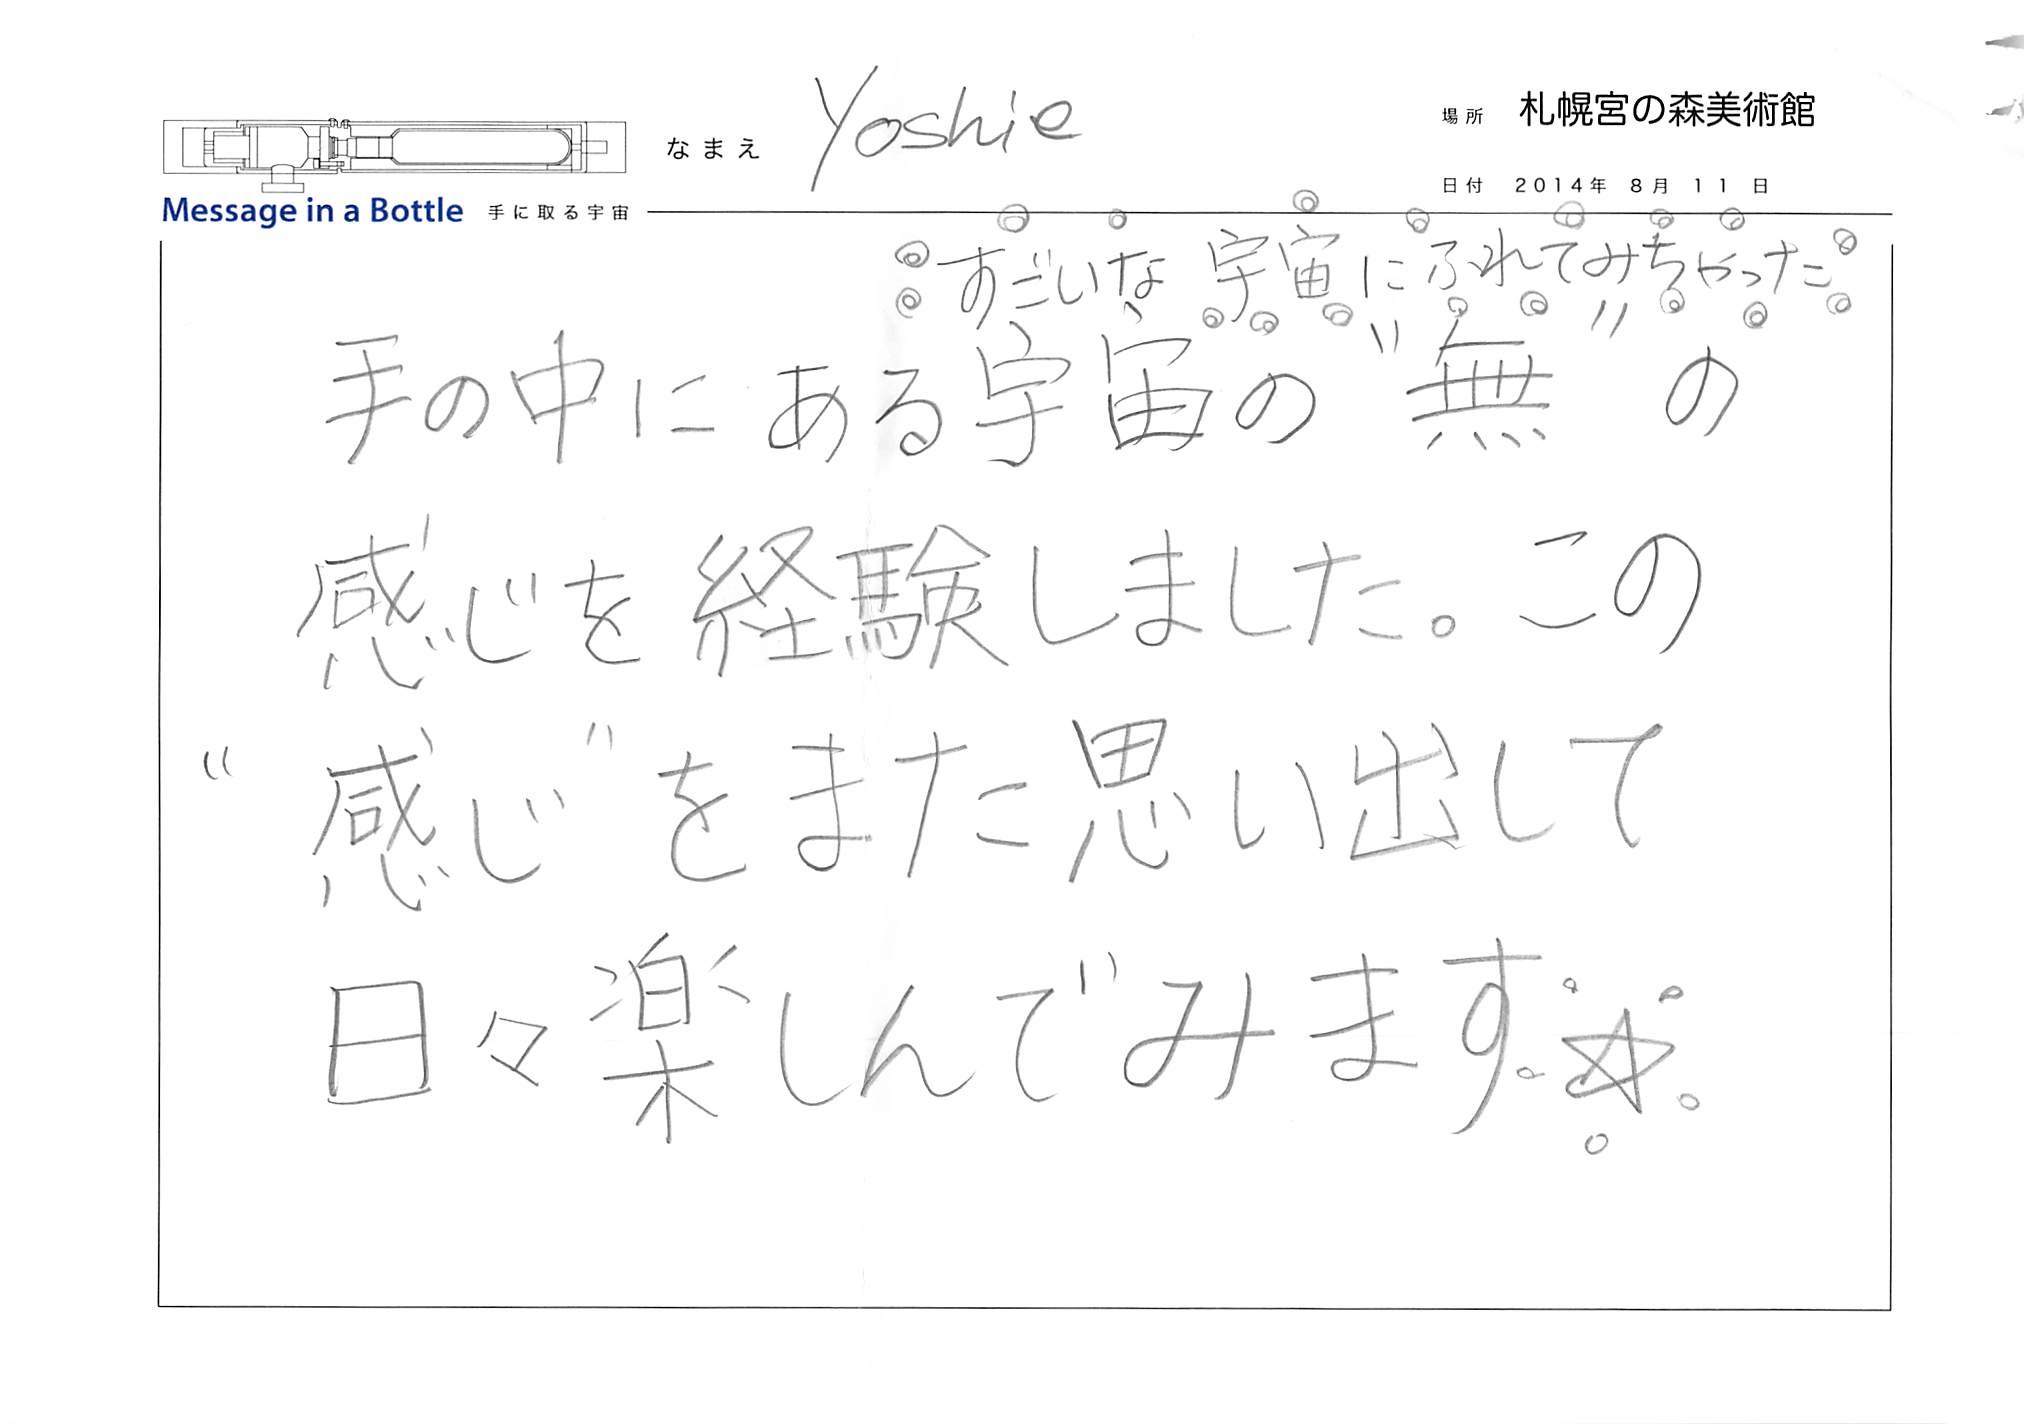 なまえ Yoshie
場所 札幌宮の森美術館
日付 2014年 8月 11日
Message in a Bottle 手に取る宇宙
すごいな 宇宙にふれてみちゃった
手の中にある宇宙の"無"の
感じを経験しました。この
"感じ"をまた思い出して
日々楽しんでみます☆